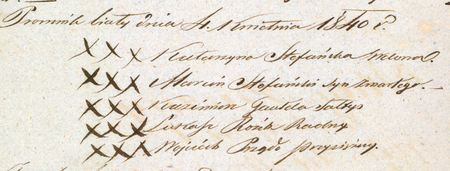 Promnik biały dnia 4. Kwietnia 1840 r.
XXX Katarzyna Stefańska Wdowa.
XXX Marcin Stefański Syn zmarłego. —
XXX Kazimierz Gawęda Sołtys
XXX Łukasz Rożek Radny
XXX Wojciech Przysiężny.